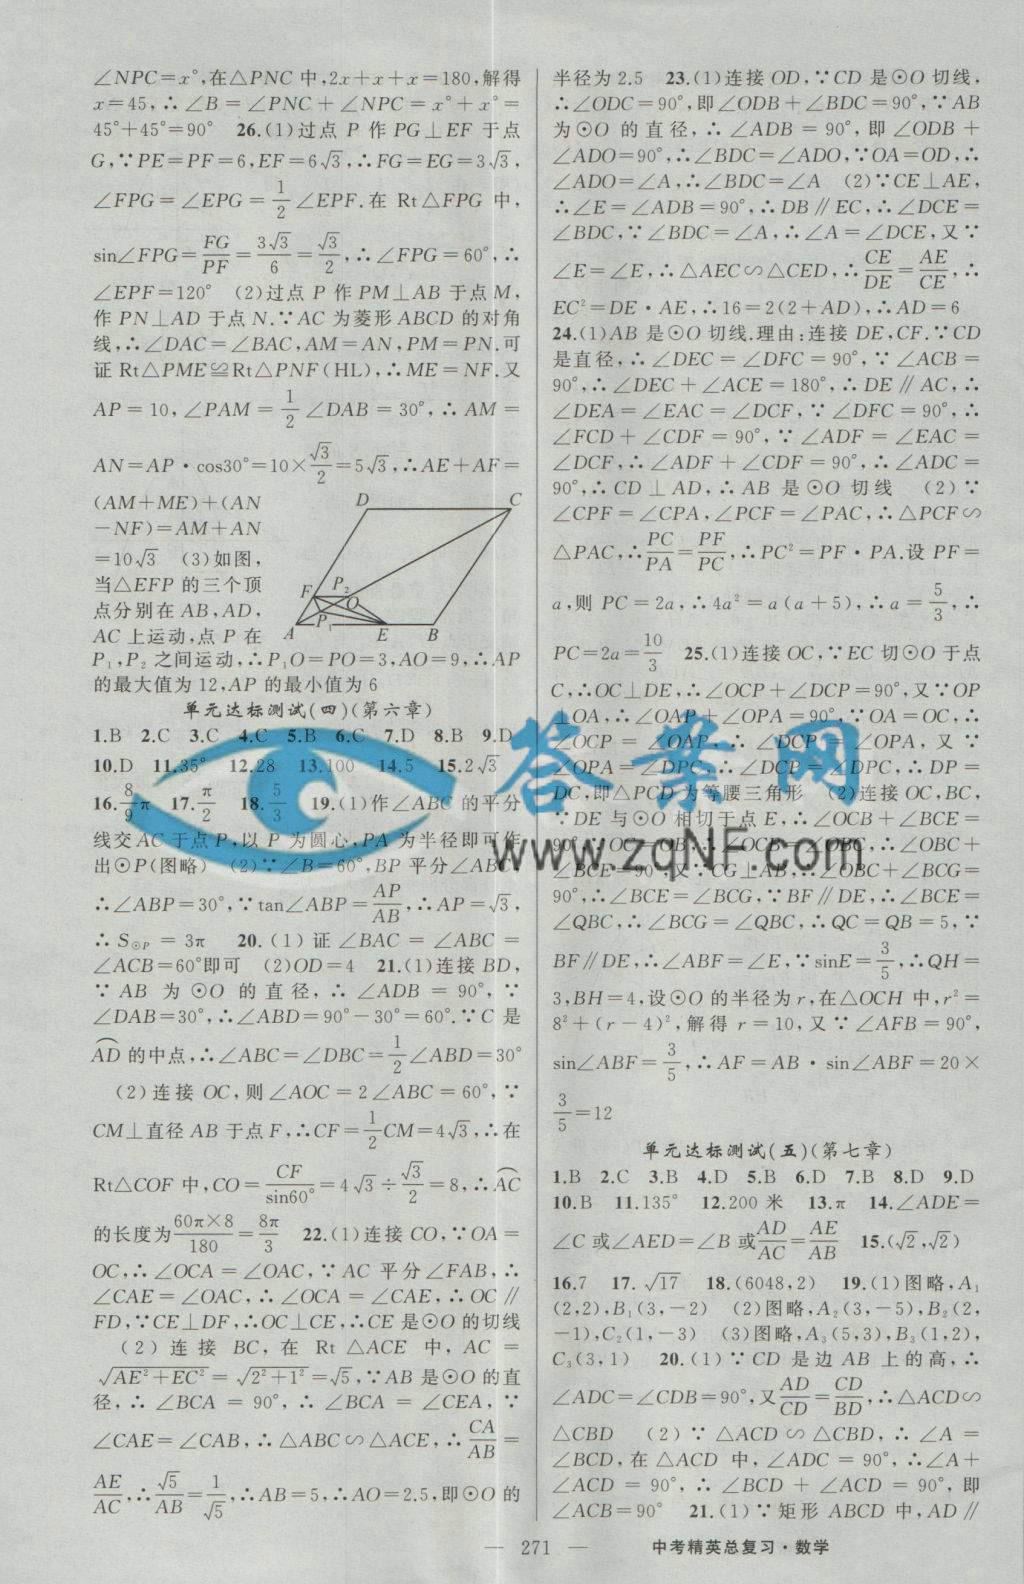 ∠NPC=x°,在△PNC中,2x+x+x=180,解得
x=45,∴∠B=∠PNC+∠NPC=x°+x°=
45°+45°=90° 26.(1)过点P作PG⊥EF于点
G,∵PE=PF=6,EF=6√3,∴FG=EG=3√3,
∠FPG=∠EPG=1/2∠EPF.在Rt△FPG中,
sin∠FPG=FG/PF=3√3/6=√3/2,∴∠FPG=60°,∴
∠EPF=120° (2)过点P作PM⊥AB于点M,
作PN⊥AD于点N.∵AC为菱形ABCD的对角
线,∴∠DAC=∠BAC,AM=AN,PM=PN.可
证Rt△PME≌Rt△PNF(HL),∴ME=NF.又
AP=10,∠PAM=1/2∠DAB=30°,∴AM=
AN=AP·cos30°=10×√3/2=5√3,∴AE+AF=
(AM+ME)+(AN
-NF)=AM+AN
=10√3 (3)如图,
当△EFP的三个顶
点分别在AB,AD,
AC上运动,点P在
P₁,P₂之间运动,∴P₁O=PO=3,AO=9,∴AP
的最大值为12,AP的最小值为6
D C F P₂ O A P₁ E B
单元达标测试(四)(第六章)
1.B 2.C 3.C 4.C 5.B 6.C 7.D 8.B 9.D
10.D 11.35° 12.28 13.100 14.5 15.2√3
16.8/9π 17.π/2 18.5/3 19.(1)作∠ABC的平分
线交AC于点P,以P为圆心,PA为半径即可作
出⊙P(图略) (2)∵∠B=60°,BP平分∠ABC,
∴∠ABP=30°,∵tan∠ABP=AP/AB,∴AP=√3,
∴S⊙P=3π 20.(1)证∠BAC=∠ABC=
∠ACB=60°即可 (2)OD=4 21.(1)连接BD,
∵AB为⊙O的直径,∴∠ADB=90°,∵
∠DAB=30°,∴∠ABD=90°-30°=60°.∵C是
AD⌒的中点,∴∠ABC=∠DBC=1/2∠ABD=30°
(2)连接OC,则∠AOC=2∠ABC=60°,∵
CM⊥直径AB于点F,∴CF=1/2CM=4√3,∴在
Rt△COF中,CO=CF/sin60°=4√3÷√3/2=8,∴AC⌒
的长度为60π×8/180=8π/3 22.(1)连接CO,∵OA=
OC,∴∠OCA=∠OAC,∵AC平分∠FAB,∴
∠CAE=∠OAC,∴∠OCA=∠CAE,∴OC∥
FD,∵CE⊥DF,∴OC⊥CE,∴CE是⊙O的切线
(2)连接BC,在Rt△ACE中,AC=
√(AE²+EC²)=√(2²+1²)=√5,∵AB是⊙O的直
径,∴∠BCA=90°,∴∠BCA=∠CEA,∵
∠CAE=∠CAB,∴△ABC∽△ACE,∴CA/AB=
AE/AC,∴√5/AB=1/√5,∴AB=5,∴AO=2.5,即⊙O的
半径为2.5 23.(1)连接OD,∵CD是⊙O切线,
∴∠ODC=90°,即∠ODB+∠BDC=90°,∵AB
为⊙O的直径,∴∠ADB=90°,即∠ODB+
∠ADO=90°,∴∠BDC=∠ADO,∵OA=OD,∴
∠ADO=∠A,∴∠BDC=∠A (2)∵CE⊥AE,
∴∠E=∠ADB=90°,∴DB∥EC,∴∠DCE=
∠BDC,∵∠BDC=∠A,∴∠A=∠DCE,又∵
∠E=∠E,∴△AEC∽△CED,∴CE/DE=AE/CE,∴
EC²=DE·AE,∴16=2(2+AD),∴AD=6
24.(1)AB是⊙O切线.理由:连接DE,CF.∵CD
是直径,∴∠DEC=∠DFC=90°,∵∠ACB=
90°,∴∠DEC+∠ACE=180°,∴DE∥AC,∴
∠DEA=∠EAC=∠DCF,∵∠DFC=90°,∴
∠FCD+∠CDF=90°,∵∠ADF=∠EAC=
∠DCF,∴∠ADF+∠CDF=90°,∴∠ADC=
90°,∴CD⊥AD,∴AB是⊙O切线 (2)∵
∠CPF=∠CPA,∠PCF=∠PAC,∴△PCF∽
△PAC,∴PC/PA=PF/PC,∴PC²=PF·PA.设PF=
a,则PC=2a,∴4a²=a(a+5),∴a=5/3,∴
PC=2a=10/3 25.(1)连接OC,∵EC切⊙O于点
C,∴OC⊥DE,∴∠OCP+∠DCP=90°,又∵OP
⊥OA,∴∠OAP+∠OPA=90°,∵OA=OC,∴
∠OCP=∠OAP,∴∠DCP=∠OPA,又∵
∠OPA=∠DPC,∴∠DCP=∠DPC,∴DP=
DC,即△PCD为等腰三角形 (2)连接OC,BC,
∵DE与⊙O相切于点E,∴∠OCB+∠BCE=
90°,∵OC=OB,∴∠OCB=∠OBC,∴∠OBC+
∠BCE=90°,又∵CG⊥AB,∴∠OBC+∠BCG=
90°,∴∠BCE=∠BCG,∵BF∥DE,∴∠BCE=
∠QBC,∴∠BCG=∠QBC,∴QC=QB=5,∵
BF∥DE,∴∠ABF=∠E,∵sinE=3/5,∴QH=
3,BH=4,设⊙O的半径为r,在△OCH中,r²=
8²+(r-4)²,解得r=10,又∵∠AFB=90°,
sin∠ABF=3/5,∴AF=AB·sin∠ABF=20×
3/5=12
单元达标测试(五)(第七章)
1.B 2.C 3.B 4.D 5.B 6.D 7.B 8.D 9.D
10.B 11.135° 12.200米 13.π 14.∠ADE=
∠C或∠AED=∠B或AD/AC=AE/AB 15.(√2,√2)
16.7 17.√17 18.(6048,2) 19.(1)图略,A₁
(2,2),B₁(3,-2) (2)图略,A₂(3,-5),B₂(2,
-1),C₂(1,-3) (3)图略,A₃(5,3),B₃(1,2),
C₃(3,1) 20.(1)∵CD是边AB上的高,∴
∠ADC=∠CDB=90°,又AD/CD=CD/BD,∴△ACD∽
△CBD (2)∵△ACD∽△CBD,∴∠A=
∠BCD,在△ACD中,∠ADC=90°,∴∠A+
∠ACD=90°,∴∠BCD+∠ACD=90°,即
∠ACB=90° 21.(1)∵矩形ABCD中,AD∥
— 271 — 中考精英总复习·数学
答案网
www.zqNF.com